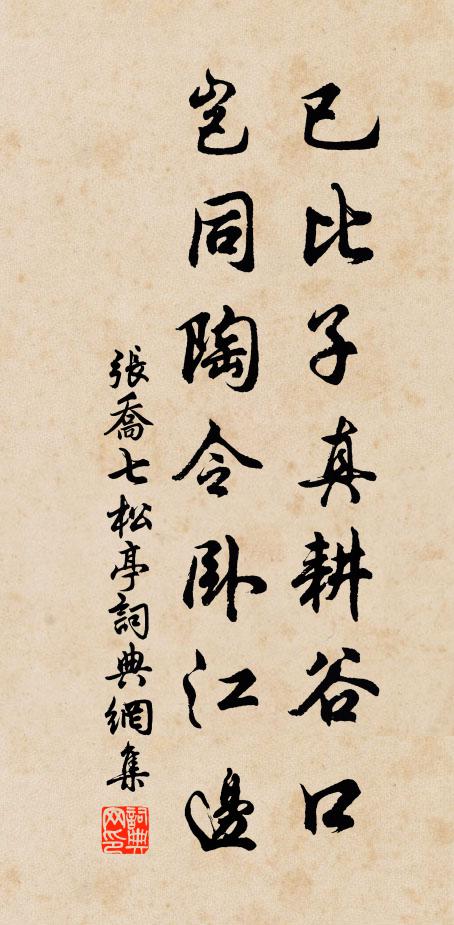 已比子真耕谷口
豈同陶令臥江邊
張喬七松亭詞典網集
詞典网印